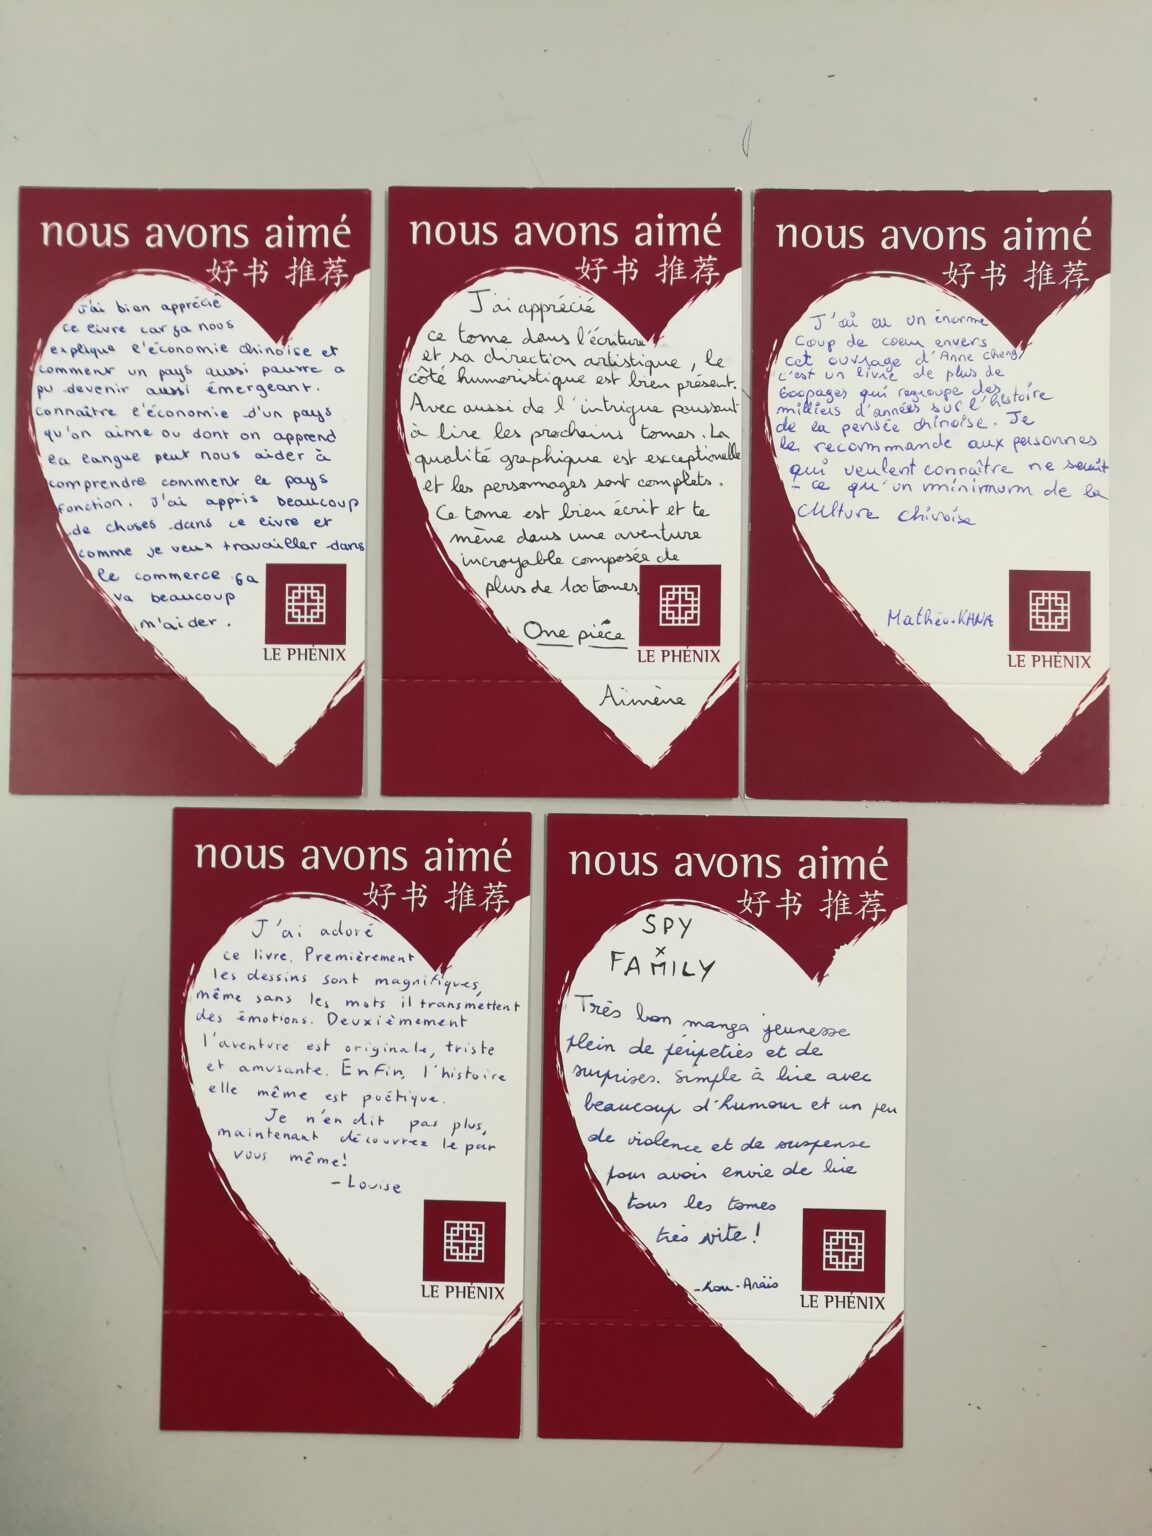 nous avons aimé
好书 推荐
J'ai bien apprécié
ce livre car ça nous
explique l'économie chinoise et
comment un pays aussi pauvre a
pu devenir aussi émergeant.
connaître l'économie d'un pays
qu'on aime ou dont on apprend
la langue peut nous aider à
comprendre comment le pays
fonction. J'ai appris beaucoup
de choses dans ce livre et
comme je veux travailler dans
le commerce ça
va beaucoup
m'aider.
LE PHÉNIX
nous avons aimé
好书 推荐
J'ai apprécié
ce tome dans l'écriture
et sa direction artistique, le
côté humoristique est bien présent.
Avec aussi de l'intrigue poussant
à lire les prochains tomes. La
qualité graphique est exceptionelle
et les personnages sont complets.
Ce tome est bien écrit et te
mène dans une aventure
incroyable composée de
plus de 100 tomes
One pièce
LE PHÉNIX
Aimène
nous avons aimé
好书 推荐
J'ai eu un énorme
coup de coeur envers
cet ouvrage d'Anne Cheng,
c'est un livre de plus de
600pages qui regroupe des
milliers d'années sur l'histoire
de la pensée chinoise. Je
le recommande aux personnes
qui veulent connaître ne serait
- ce qu'un minimum de la
culture chinoise
Mathéo.KANA
LE PHÉNIX
nous avons aimé
好书 推荐
J'ai adoré
ce livre. Premièrement
les dessins sont magnifiques,
même sans les mots il transmettent
des émotions. Deuxièmement
l'aventure est originale, triste
et amusante. Enfin, l'histoire
elle même est poétique.
Je n'en dit pas plus,
maintenant découvrez le par
vous même!
- Louise
LE PHÉNIX
nous avons aimé
好书 推荐
SPY
x
FAMILY
Très bon manga jeunesse
plein de péripeties et de
surprises. Simple à lire avec
beaucoup d'humour et un peu
de violence et de suspense
pour avoir envie de lire
tous les tomes
très vite !
Anaïs
LE PHÉNIX